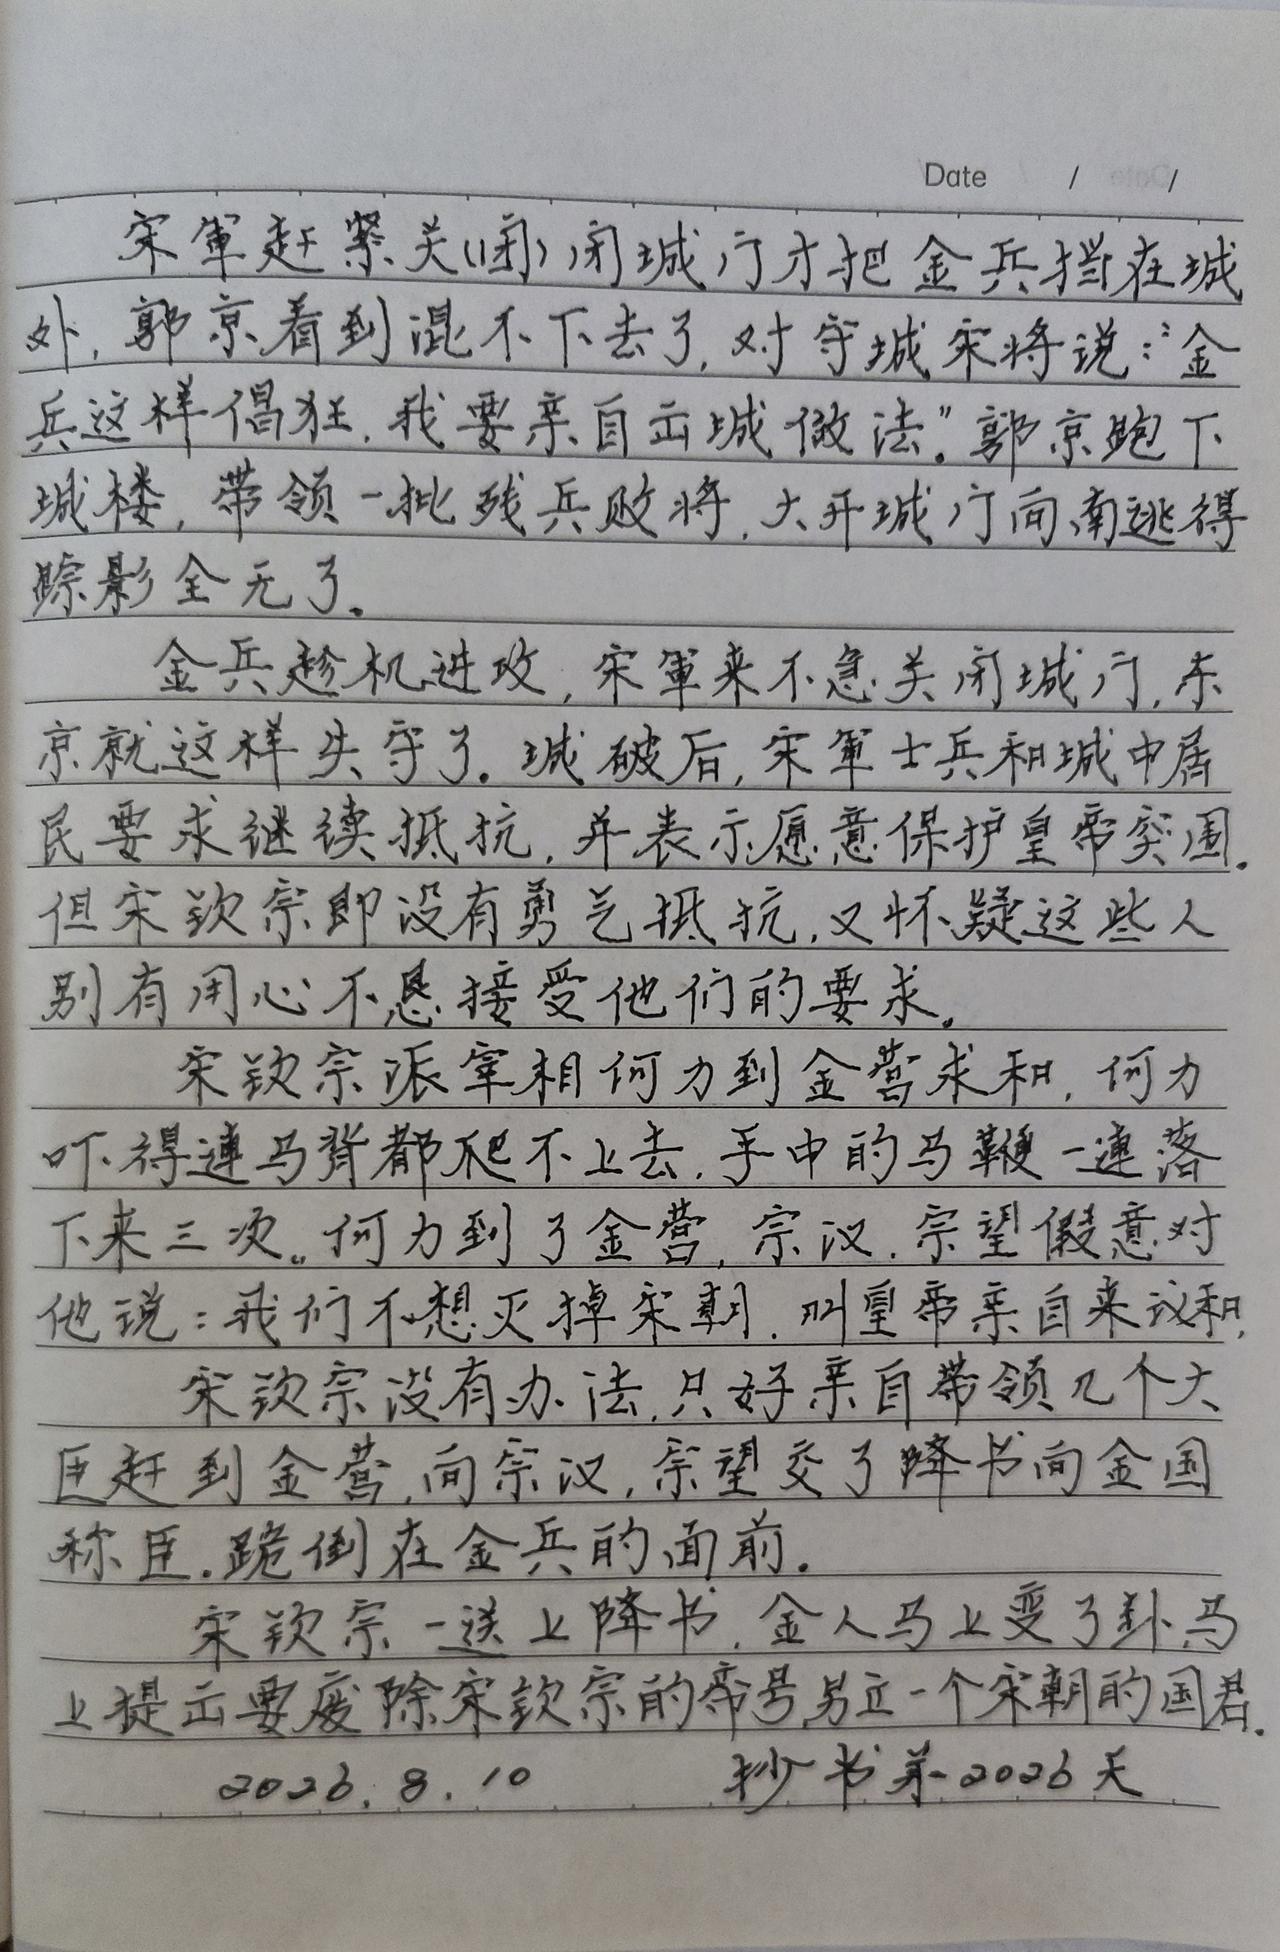 Date / /
宋軍赶紧关(闭)闭城门才把金兵挡在城
外，郭京看到混不下去了，对守城宋将说：“金
兵这样倡狂，我要亲自出城做法”。郭京跑下
城楼，带领一批残兵败将，大开城门向南逃得
踪影全无了。
金兵趁机进攻，宋軍来不急关闭城门，东
京就这样失守了。城破后，宋軍士兵和城中居
民要求继读抵抗，并表示愿意保护皇帝突围。
但宋钦宗即没有勇气抵抗，又怀疑这些人
别有用心不恳接受他们的要求。
宋钦宗派宰相何力到金营求和，何力
吓得連马背都爬不上去，手中的马鞭一連落
下来三次。何力到了金营，宗汉，宗望假意对
他说：我们不想灭掉宋朝，叫皇帝亲自来议和，
宋钦宗没有办法，只好亲自带领几个大
臣赶到金营，向宗汉，宗望交了降书向金国
称臣。跪倒在金兵的面前。
宋钦宗一送上降书，金人马上变了卦，马
上提出要废除宋钦宗的帝号，另立一个宋朝的国君。
2026.8.10 抄书第2026天